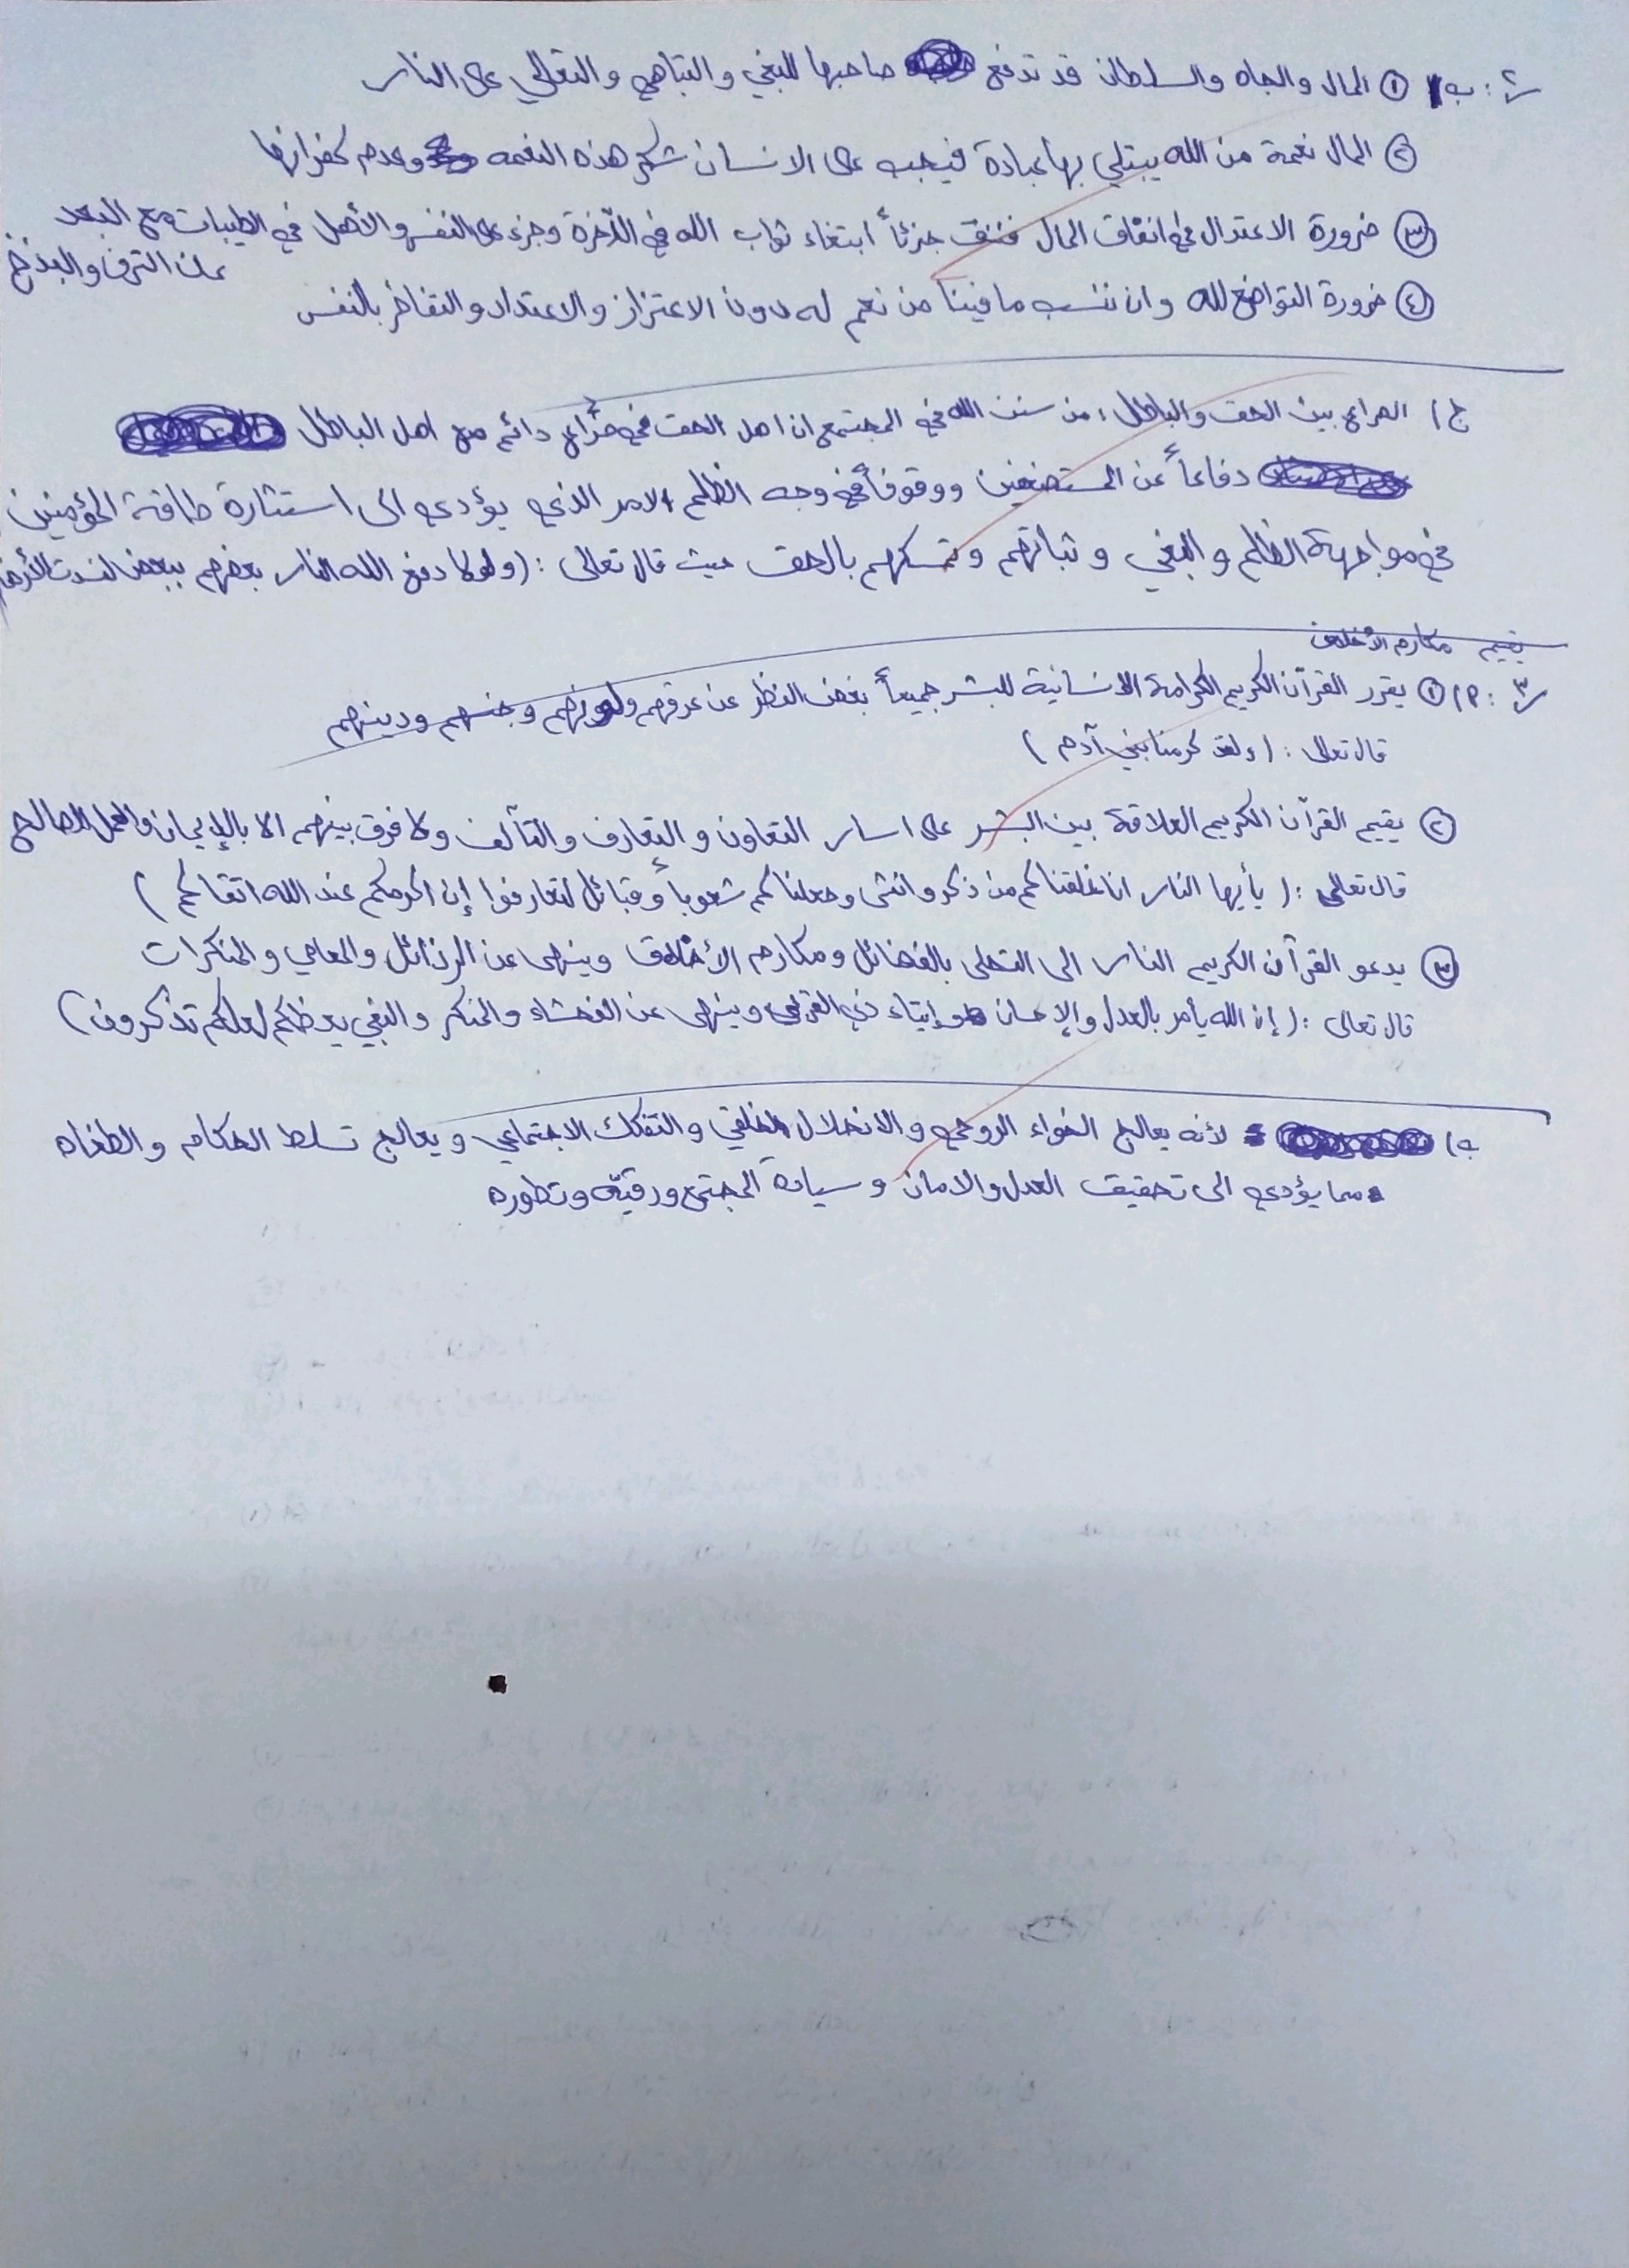 س٢: ب) ① المال والجاه والسلطان قد تدفع صاحبها للبغي والتباهي والتعالي على الناس
② المال نعمة من الله يبتلي بها عبادة فيجب على الانسان شكر هذه النعمه وعدم كفرانها
③ ضرورة الاعتدال في انفاق المال فننفق جزئاً ابتغاء ثواب الله في الآخرة وجزء على النفس والأهل في الطيبات مع البعد
عن الترف والبذخ
④ ضرورة التواضع لله وان ننسب ما فينا من نعم له دون الاعتزاز والاعتداد والتفاخر بالنفس
ج) الصراع بين الحق والباطل: من سنن الله في المجتمع ان اهل الحق في صراع دائم مع اهل الباطل
دفاعاً عن المستضعفين ووقوفاً في وجه الظلم الامر الذي يؤدي الى استثارة طاقة المؤمنين
في مواجهة الظلم والبغي وثباتهم وتمسكهم بالحق حيث قال تعالى: (ولولا دفع الله الناس بعضهم ببعض لفسدت الأرض
يقيم مكارم الأخلاق
س٣: ٢) ① يقرر القرآن الكريم الكرامة الانسانية للبشر جميعاً بغض النظر عن عرقهم ولونهم وجنسهم ودينهم
قال تعالى: (ولقد كرمنا بني آدم)
② يقيم القرآن الكريم العلاقة بين البشر على اساس التعاون والتعارف والتآلف ولا فرق بينهم الا بالإيمان والعمل الصالح
قال تعالى: (يأيها الناس انا خلقناكم من ذكر وانثى وجعلناكم شعوباً وقبائل لتعارفوا إن اكرمكم عند الله اتقاكم)
③ يدعو القرآن الكريم الناس الى التحلى بالفضائل ومكارم الأخلاق وينهى عن الرذائل والمعاصي والمنكرات
قال تعالى: (إن الله يأمر بالعدل والإحسان وإيتاء ذي القربى وينهى عن الفحشاء والمنكر والبغي يعظكم لعلكم تذكرون)
ب) لأنه يعالج الخواء الروحي والانحلال الخلقي والتفكك الاجتماعي ويعالج تسلط الحكام والطغاه
مما يؤدي الى تحقيق العدل والامان وسيادة المجتمع ورقيّه وتطوره